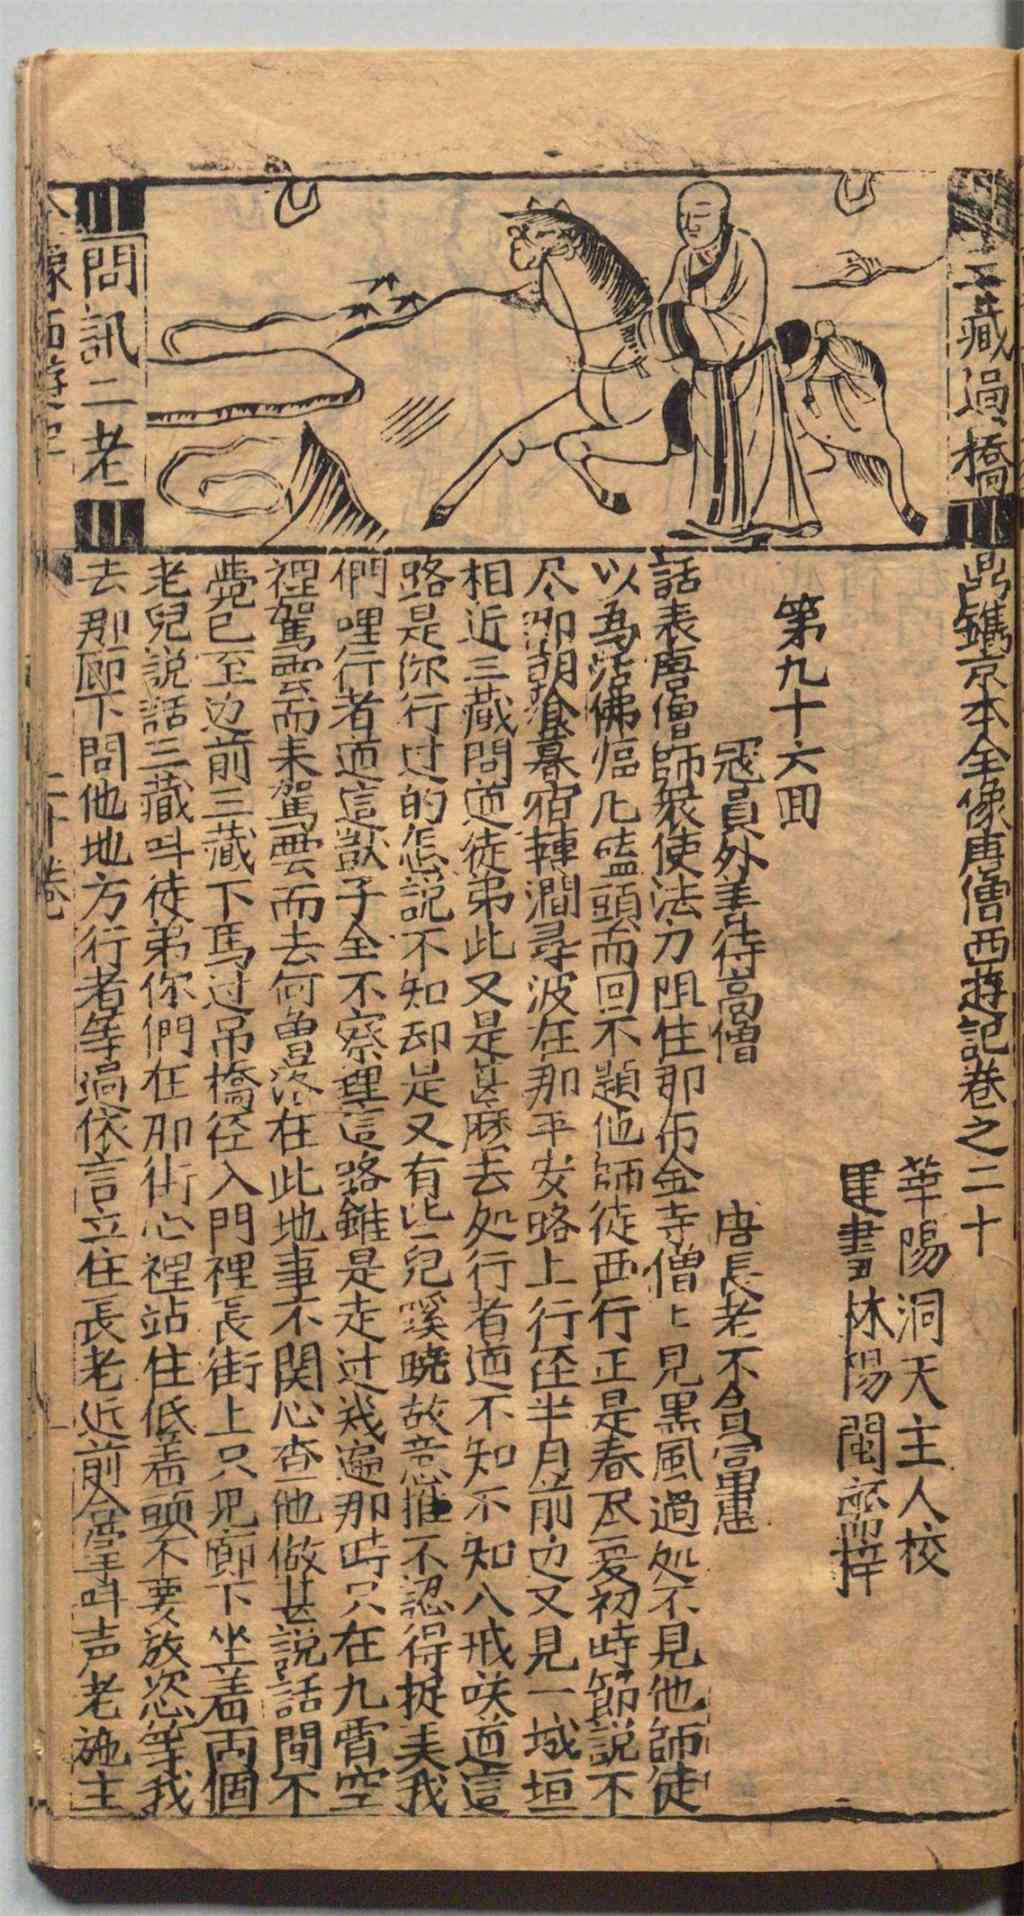 三藏過橋
問訊二老
鼎鐫京本全像唐僧西遊記卷之二十
華陽洞天主人校
書林陽閩齋梓
第九十六回
寇員外善待高僧　唐長老不貪富惠
話表唐僧師衆使法力阻住那布金寺僧僧見黒風過処不見他師徒
以為活佛臨凡磕頭而回不題他師徒西行正是春尽夏初時節說不
尽那朝飡暮宿轉澗尋波在那平安路上行経半月前边又見一城垣
相近三藏問道徒弟此又是甚麽去処行者道不知不知八戒咲道這
路是你行过的怎說不知却是又有些兒蹊曉故意推不認得捉美我
們哩行者道這獃子全不察理這路雖是走过幾遍那時只在九霄空
裡駕雲而来駕雲而去何曽落在此地事不関心查他做甚說話間不
覺已至边前三藏下馬过吊橋径入門裡長街上只見廊下坐着两個
老兒說話三藏叫徒弟你們在那街心裡站住低着頭不要放恣等我
去那廊下問他地方行者等過依言立住長老近前合掌叫声老施主
二十卷